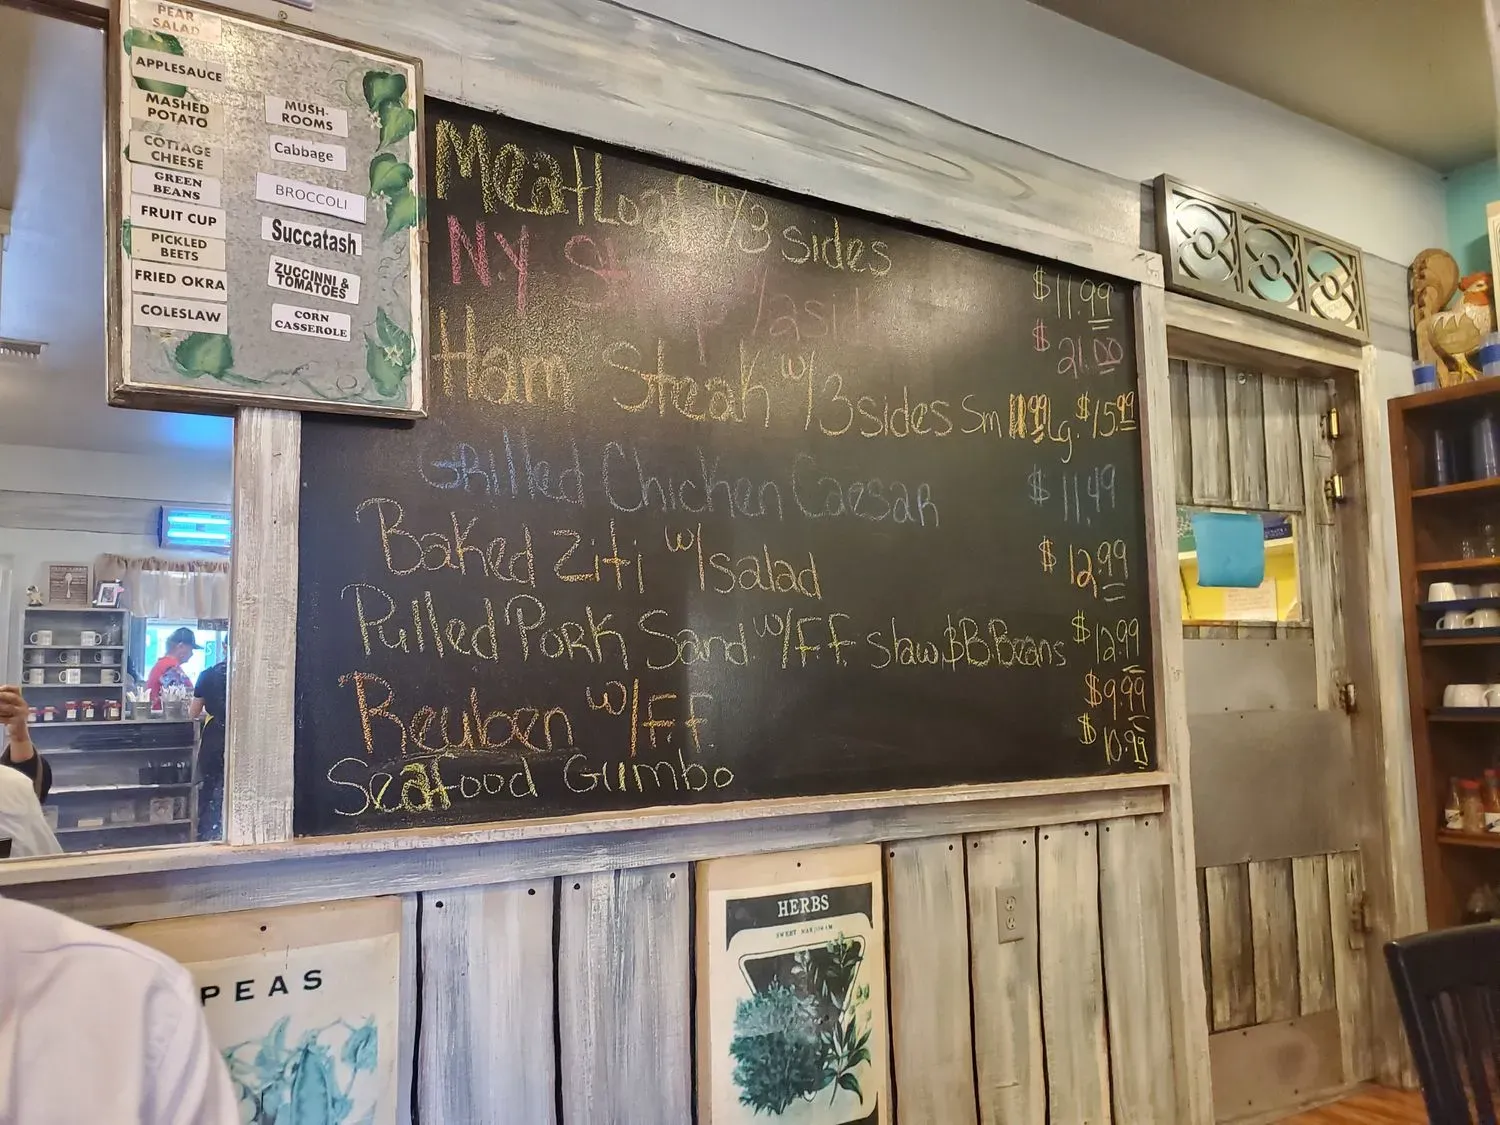 PEAR
SALAD
APPLESAUCE
MASHED
POTATO
COTTAGE
CHEESE
GREEN
BEANS
FRUIT CUP
PICKLED
BEETS
FRIED OKRA
COLESLAW
MUSH-
ROOMS
Cabbage
BROCCOLI
Succatash
ZUCCINNI &
TOMATOES
CORN
CASSEROLE
MeatLoaf w/3 sides $11.99
N.Y Strip w/2 sides $21.00
Ham Steak w/3 sides Sm 11.99 Lg. $15.99
Grilled Chicken Caesar $11.49
Baked Ziti w/salad $12.99
Pulled Pork Sand. w/F.F. slaw,$B.Beans $12.99
Reuben w/F.F. $9.99
Seafood Gumbo $10.99
PEAS
HERBS
SWEET MARJORAM